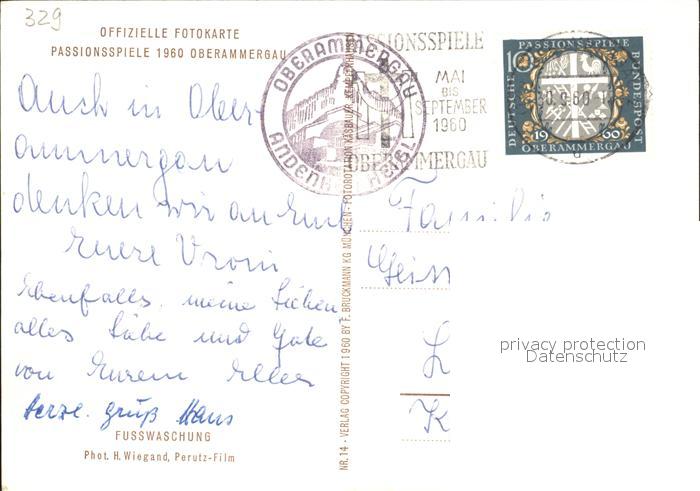 329
OFFIZIELLE FOTOKARTE
PASSIONSSPIELE 1960 OBERAMMERGAU
Auch in Ober-
ammergau
denken wir an Euch
Eure Vroni
Ebenfalls meine Lieben
alles Liebe und Gute
von Eurem
herzl. gruß Hans
FUSSWASCHUNG
Phot. H. Wiegand, Perutz-Film
NR. 14 - VERLAG COPYRIGHT 1960 BY F. BRUCKMANN KG MÜNCHEN - FOTOROTATION
OBERAMMERGAU
PASSIONSSPIELE
MAI
BIS
SEPTEMBER
1960
OBERAMMERGAU
10
PASSIONSSPIELE
DEUTSCHE
BUNDESPOST
1960
OBERAMMERGAU
Familie
Geis
L
K
privacy protection
Datenschutz